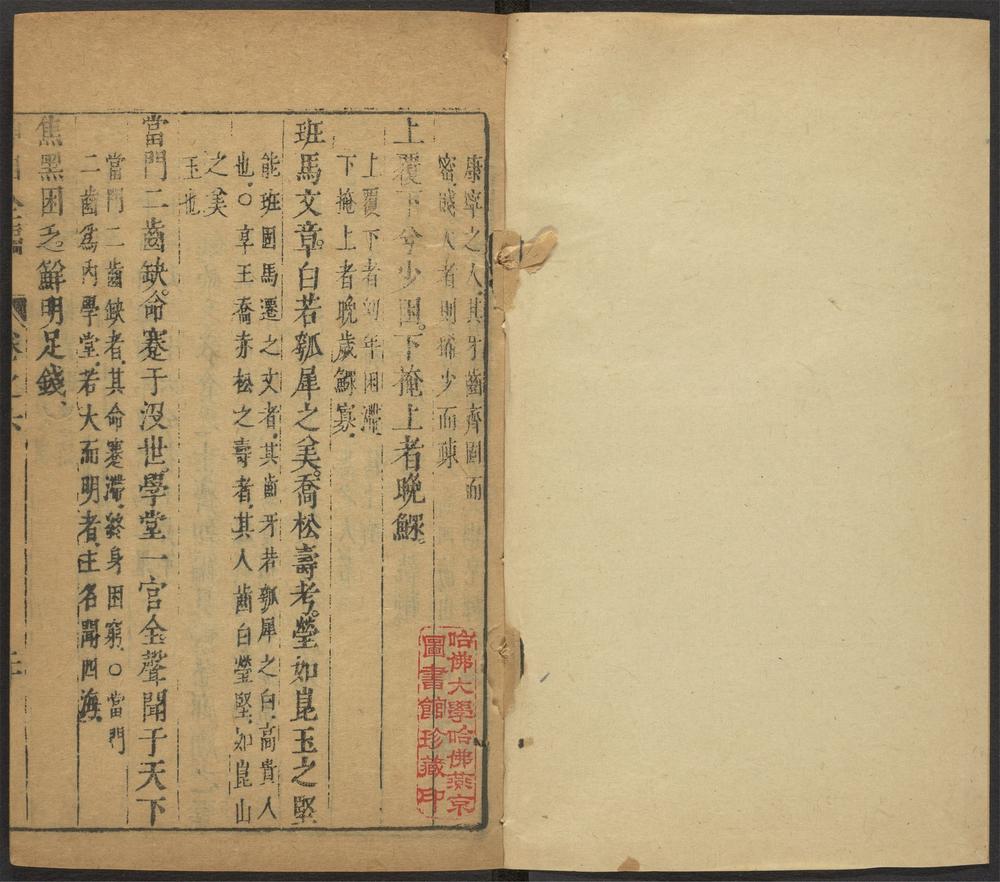 康寧之人其牙齒齊固而
密賤人者則稀少而疎
上覆下兮少困。下掩上者晚鰥。
上覆下者初年困滯
下掩上者晚歲鰥寡。
班馬文章。白若瓠犀之美。喬松壽考。瑩如崑玉之堅
能班固馬遷之文者。其齒牙若瓠犀之白。高貴人
也。○享王喬赤松之壽者。其人齒白瑩堅。如崑山
之美
玉也
當門二齒缺。命蹇于沒世。學堂一官全。聲聞于天下
當門二齒缺者。其命蹇滯。終身困窮。○當門
二齒爲內學堂。若大而明者。主名聞四海。
焦黑困乏。鮮明足錢。
卷之六
哈佛大學哈佛燕京
圖書館珍藏印